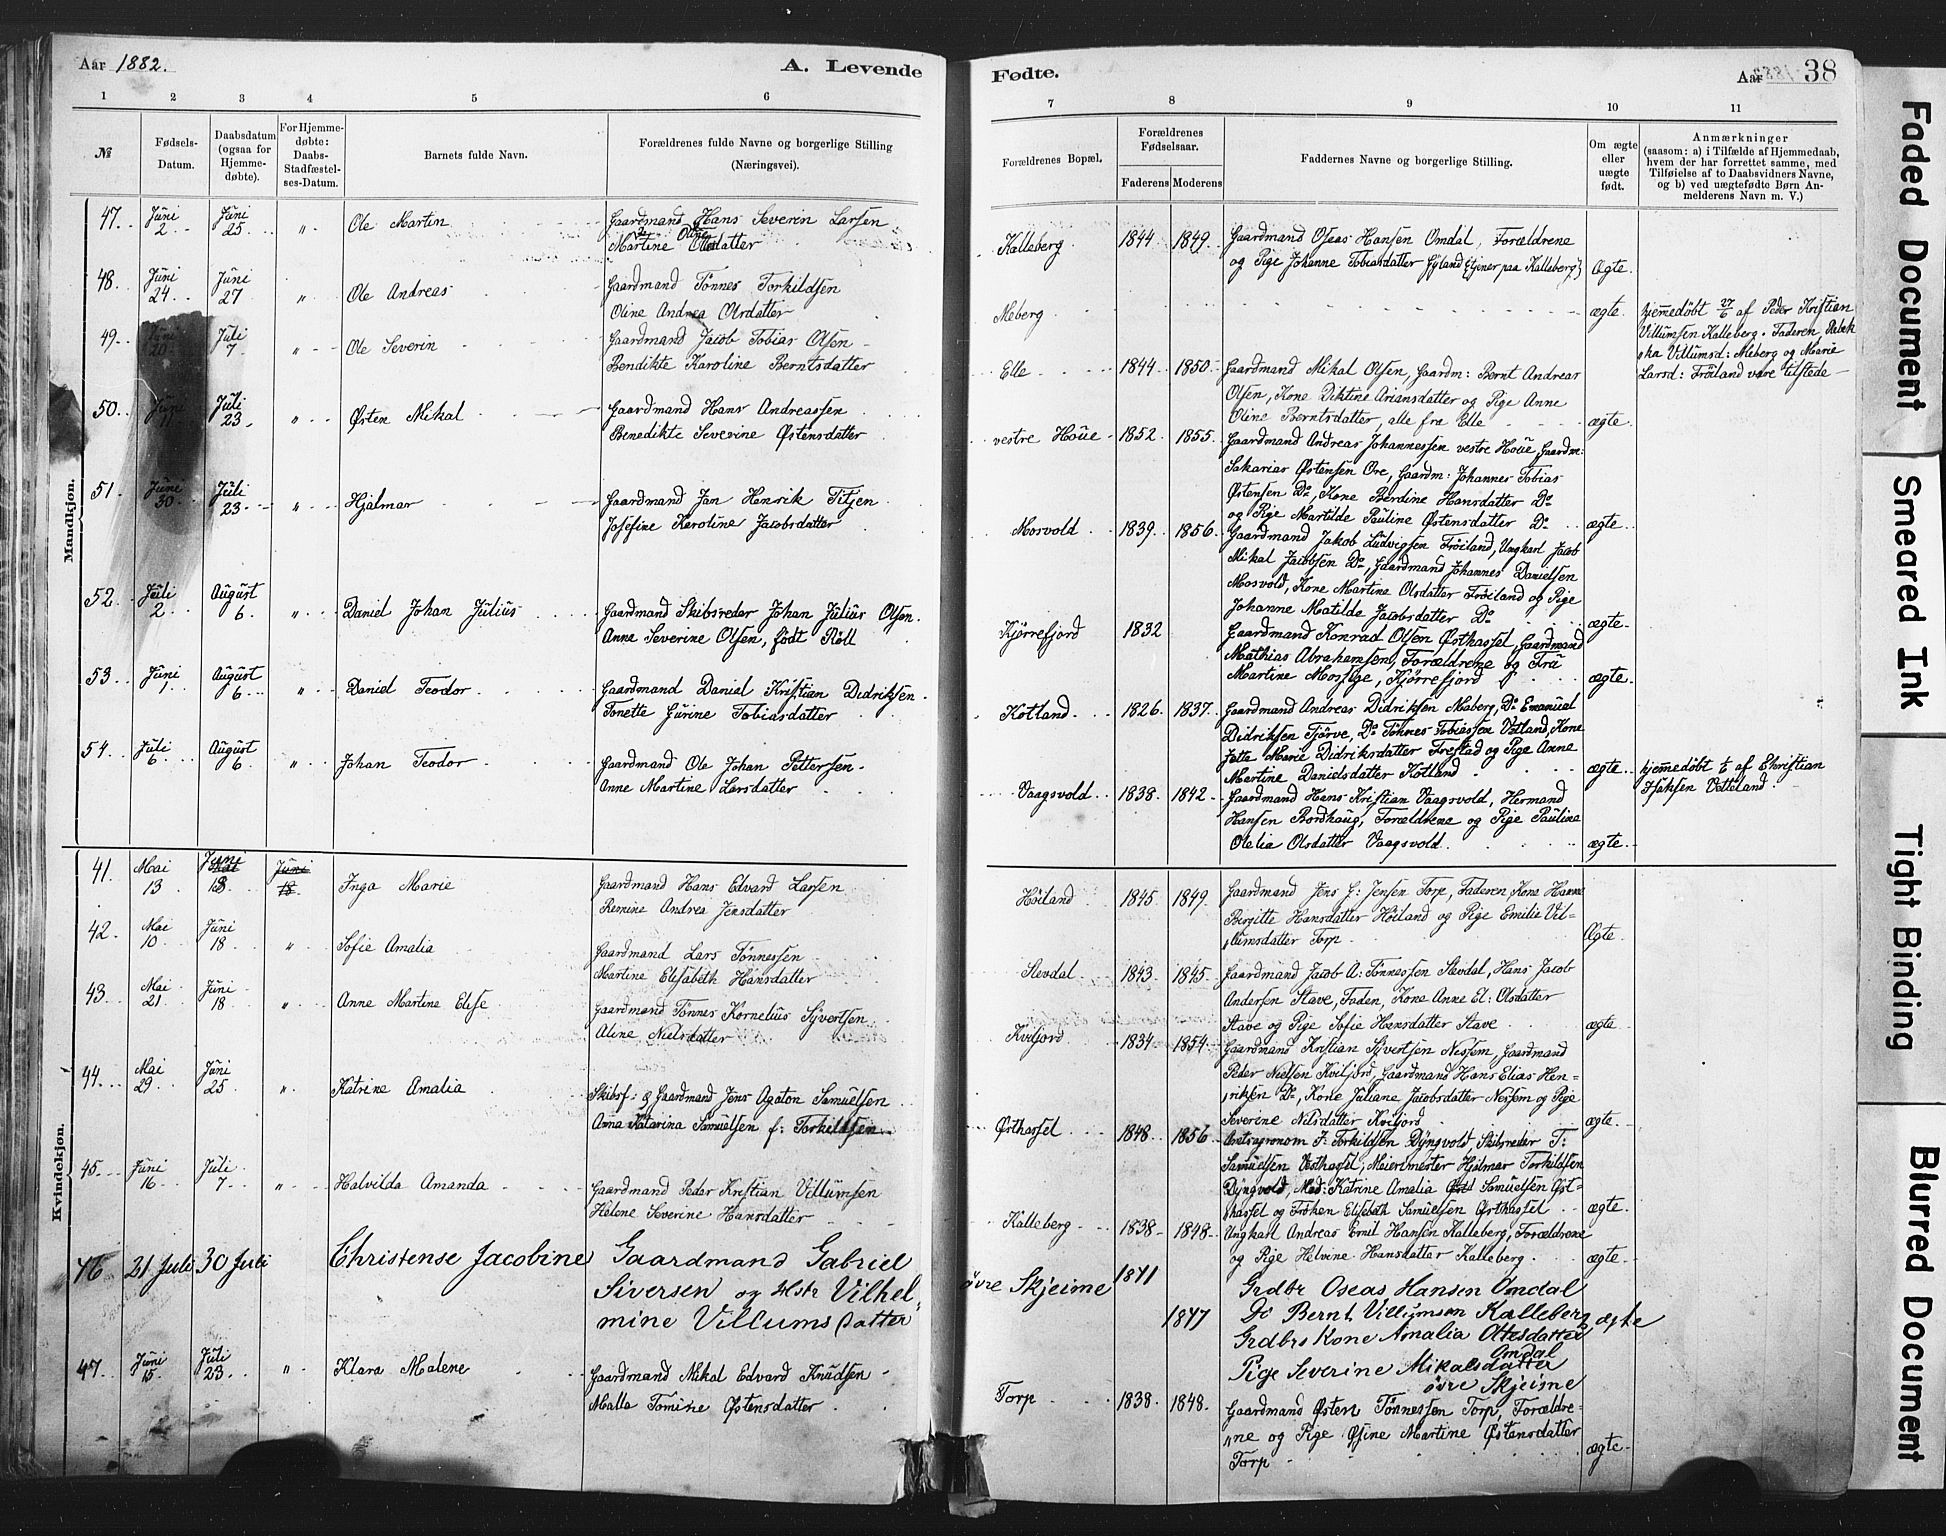 Aar 1882.
A. Levende
Fødte.
Aar
38
1 2 3 4 5 6
7 8 9 10 11
№
Fødsels-
Datum.
Daabsdatum
(ogsaa for
Hjemme-
døbte).
For Hjemme-
døbte:
Daabs-
Stadfæstel-
ses-Datum.
Barnets fulde Navn.
Forældrenes fulde Navne og borgerlige Stilling
(Næringsvei).
Forældrenes Bopæl.
Forældrenes
Fødselsaar.
Faderens Moderens
Faddernes Navne og borgerlige Stilling.
Om ægte
eller
uægte
født.
Anmærkninger
(saasom: a) i Tilfælde af Hjemmedaab,
hvem der har forrettet samme, med
Tilføielse af to Daabsvidners Navne,
og b) ved uægtefødte Børn An-
melderens Navn m. V.)
Mandkjøn.
47. Juni 2 Juni 25 " Ole Martin
Gaardmand Hans Severin Larsen
Martine Oline Olsdatter
Kalleberg 1844 1849
Gaardmand Oseas Hansen Omdal, Forældrene
og Pige Johanne Tobiasdatter Gyland (tjener paa Kalleberg) Ægte
48. Juni 24 Juni 27 " Ole Andreas
Gaardmand Tønnes Torkildsen
Oline Andrea Olsdatter
Meberg
ægte
hjemmedøbt 27/6 af Peder Kristian
Villumsen Kalleberg. Faderen
Villumsd: Meberg og Marie
Larsd: Frøiland vare tilstede
49. Juni 20 Juli 7 " Ole Severin
Gaardmand Jacob Tobias Olsen
Bendikte Karoline Berntsdatter
Elle 1844 1850
Gaardmand Mikal Olsen, Gaardm: Bernt Andreas
Olsen, Kone Diktine Ariansdatter og Pige Anne
Oline Berntsdatter, alle fra Elle ægte
50. Juni 11 Juli 23 " Østen Mikal
Gaardmand Hans Andreassen
Benedikte Severine Østensdatter
vestre Houe 1852 1855
Gaardmand Andreas Johannessen vestre Houe, Gaardm:
Sakarias Østensen Ore, Gaardm: Johannes Tobias
Østensen Do, Kone Berdine Hansdatter Do
og Pige Martilde Pauline Østensdatter Do ægte
51. Juni 30 Juli 23 " Hjalmar
Gaardmand Jan Henrik Titjen
Josefine Karoline Jacobsdatter
Mosvold 1839 1856
Gaardmand Jakob Ludvigsen Frøiland, Ungkarl Jacob
Mikal Jacobsen Do, Gaardmand Johannes Danielsen
Mosvold, Kone Martine Olsdatter Frøiland og Pige
Johanne Matilde Jacobsdatter Do ægte
52. Juli 2 August 6 " Daniel Johan Julius
Gaardmand Skibsreder Johan Julius Olsen
Anne Severine Olsen, født Röll
Kjørrefjord 1832
Gaardmand Konrad Olsen Østhassel, Gaardmand
Mathias Abrahamsen, Forældrene og Fru
Martine Mossige, Kjørrefjord ægte
53. Juni 1 August 6 " Daniel Teodor
Gaardmand Daniel Kristian Didriksen
Tonette Gurine Tobiasdatter
Kotland 1826 1837
Gaardmand Andreas Didriksen Maberg, Do Emanuel
Didriksen Tjørve, Do Tönnes Tobiassen Vatland, Kone
Jette Marie Didriksdatter Frestad og Pige Anne
Martine Danielsdatter Kotland ægte
hjemmedøbt 1/6 af Christian
Isaksen Vetteland
54. Juli 6 August 6 " Johan Teodor
Gaardmand Ole Johan Pettersen
Anne Martine Larsdatter
Vaagsvold 1838 1842
Gaardmand Hans Kristian Vaagsvold, Hermand
Hansen Bordhaug, Forældrene og Pige Pauline
Otelia Olsdatter Vaagsvold ægte
Kvindekjøn.
41. Mai 13 Juni 18 Juni 18 Inga Marie
Gaardmand Hans Edvard Larsen
Remine Andrea Jensdatter
Høiland 1845 1849
Gaardmand Jens G: Jensen Torp, Faderen, Kone Hanne
Birgitte Hansdatter Høiland og Pige Emilie Vil-
lumsdatter Torp Ægte
42. Mai 10 Juni 18 " Sofie Amalia
Gaardmand Lars Tønnessen
Martine Elisabeth Hansdatter
Slevdal 1843 1845
Gaardmand Jacob A: Tønnessen Slevdal, Hans Jacob
Andersen Stave, Faderen, Kone Anne El: Olsdatter
Stave og Pige Sofie Hansdatter Stave ægte
43. Mai 21 Juni 18 " Anne Martine Elise
Gaardmand Tønnes Kornelius Syvertsen
Aline Nielsdatter
Kviljord 1834 1854
Gaardmand Kristian Syvertsen Nessem, Gaardmand
Peder Nielsen Kviljord, Gaardmand Hans Elias Hen-
riksen Do, Kone Juliane Jacobsdatter Nessem og Pige
Severine Nilsdatter Kviljord ægte
44. Mai 29 Juni 25 " Katrine Amalia
Skibsf: og Gaardmand Jens Agaton Samuelsen
Anna Katarina Samuelsen f: Torkildsen
Østhassel 1848 1856
Amtsagronom J: Torkildsen Dyngvold, Skibsreder T:
Samuelsen Vesthassel, Meierimester Hjalmar Torkildsen
Dyngvold, Mad: Katrine Amalia Samuelsen Øst-
hassel og Frøken Elisabeth Samuelsen Østhassel ægte
45. Juni 16 Juli 7 " Halvilda Amanda
Gaardmand Peder Kristian Villumsen
Helene Severine Hansdatter
Kalleberg 1838 1848
Ungkarl Andreas Emil Hansen Kalleberg, Forældrene
og Pige Helvine Hansdatter Kalleberg ægte
46 21 Juli 30 Juli Christense Jacobine
Gaardmand Gabriel
Siversen og Hstr Vilhel-
mine Villumsdatter
øvre Skjeime 1841
1847
Grdbr Oseas Hansen Omdal
Do Bernt Villumsen Kalleberg ægte
Grdbrs Kone Amalia Ottesdatter
Omdal
Pige Severine Mikalsdatter
øvre Skjeime
47. Juni 15 Juli 23 " Klara Malene
Gaardmand Mikal Edvard Knudsen
Malla Tomine Østensdatter
Torp 1838 1848
Gaardmand Østen Tønnessen Torp, Forældre-
ne og Pige Osine Martine Østensdatter
Torp ægte
Faded Document
Smeared Ink
Tight Binding
Blurred Document